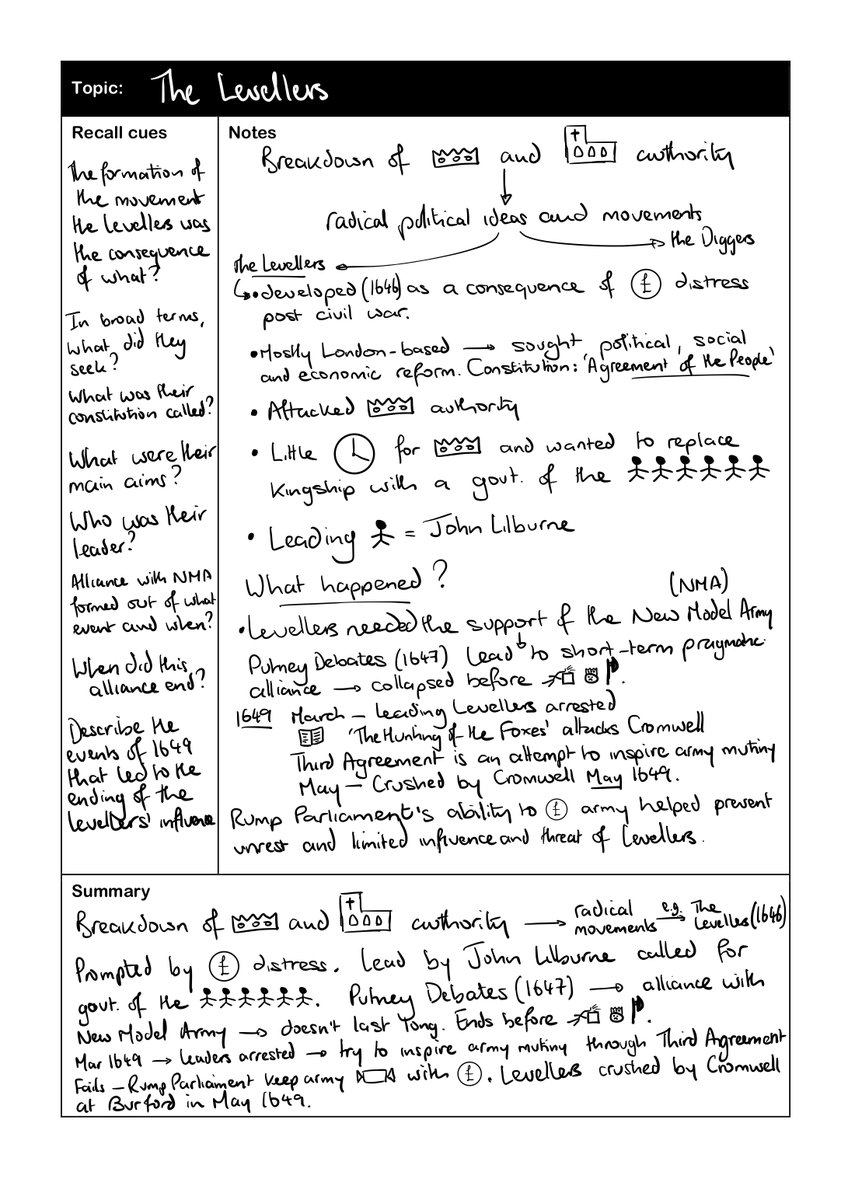 Topic: The Levellers
Recall cues
The formation of
the movement
the levellers was
the consequence
of what?
In broad terms,
what did they
seek?
What was their
constitution called?
What were their
main aims?
Who was their
leader?
Alliance with NMA
formed out of what
event and when?
When did this
alliance end?
Describe the
events of 1649
that led to the
ending of the
levellers' influence
Notes
Breakdown of and authority
radical political ideas and movements
the Diggers
The Levellers
• developed (1646) as a consequence of £ distress
post civil war.
• Mostly London-based → sought political, social
and economic reform. Constitution: 'Agreement of the People'
• Attacked authority
• Little for and wanted to replace
Kingship with a govt. of the
• Leading = John Lilburne
What happened?
(NMA)
• Levellers needed the support of the New Model Army
Putney Debates (1647) lead to short-term pragmatic
alliance → collapsed before
1649 March – leading Levellers arrested
'The Hunting of the Foxes' attacks Cromwell
Third Agreement is an attempt to inspire army mutiny
May – Crushed by Cromwell May 1649.
Rump Parliament's ability to £ army helped prevent
unrest and limited influence and threat of Levellers.
Summary
Breakdown of and authority → radical movements e.g. → The Levelles (1646)
Prompted by £ distress. Lead by John Lilburne called for
govt. of the . Putney Debates (1647) → alliance with
New Model Army → doesn't last long. Ends before .
Mar 1649 → leaders arrested → try to inspire army mutiny through Third Agreement
Fails – Rump Parliament keep army with £. Levellers crushed by Cromwell
at Burford in May 1649.